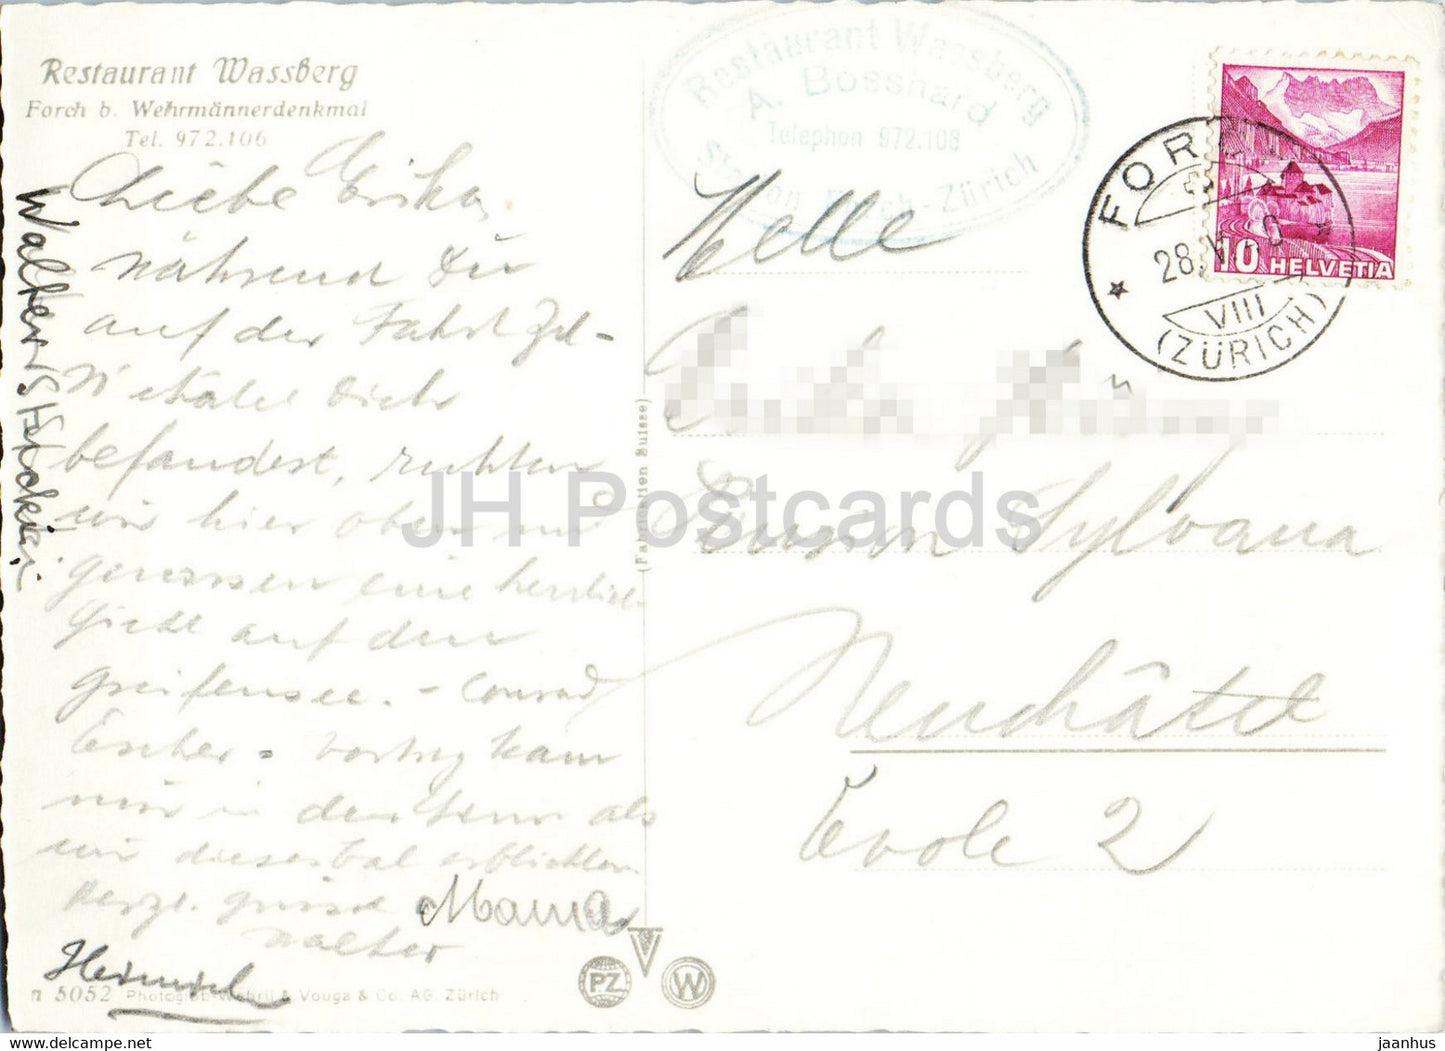 Restaurant Wassberg
Forch b. Wehrmännerdenkmal
Tel. 972.106
Restaurant Wassberg
A. Bosshard
Telephon 972.108
Station Forch-Zürich
FORCH
28. V.
VIII
(ZÜRICH)
10 HELVETIA
Liebe Erika,
während Du
auf der Fahrt
Dich
befandest, ruhten
wir hier oben und
genossen eine herrliche
Sicht auf den
Greifensee. - Conrad
Escher - Vortrag kam
mir in den Sinn als
wir dieses Tal erblickten
Herzl. Grüsse Mama
Walter
Heinrich
Walter
Melle
Pension Sylvana
Neuchâtel
Evole 2
(Fabrication Suisse)
PZ W
n 5052 Photoglob-Wehrli & Vouga & Co. AG. Zürich
JH Postcards
jaanhus — https://jhpostcards.com